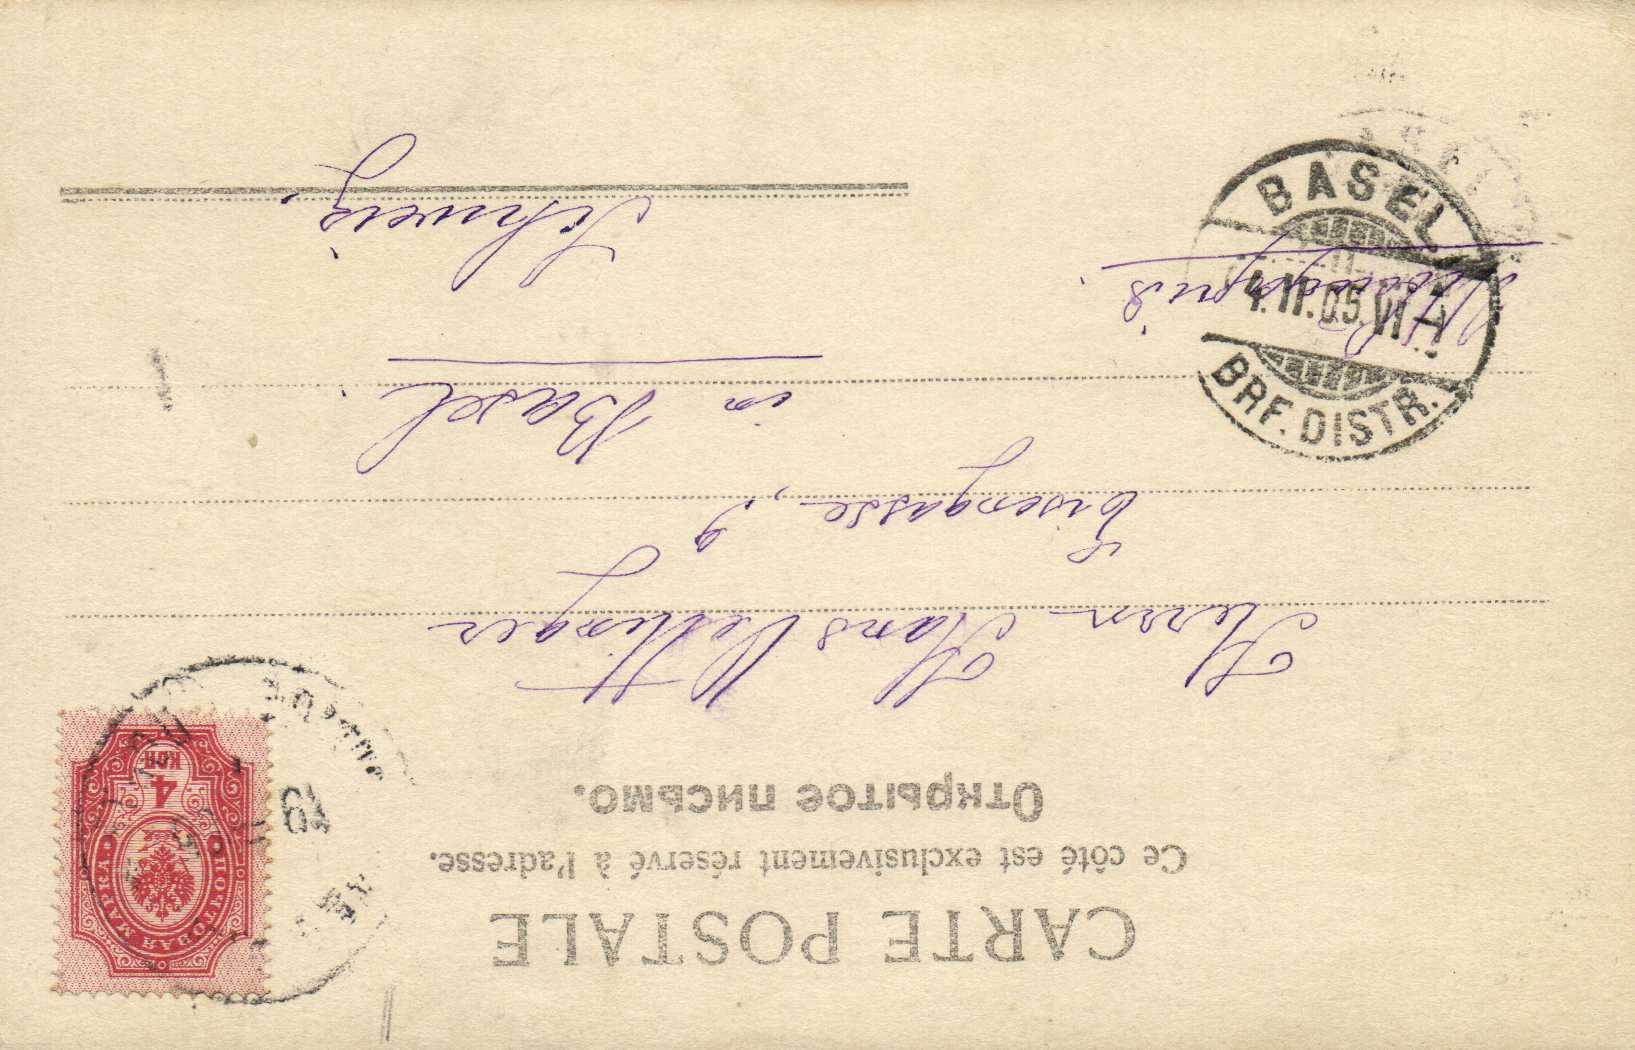 CARTE POSTALE
Ce côté est exclusivement réservé à l'adresse.
Открытое письмо.
ПОЧТОВАЯ МАРКА.
4
КОП.
19
Herrn Hans Vettinger
Eisengasse, 9
in Basel.
Schweiz.
BASEL
4.II.05.VI
BRF. DISTR.